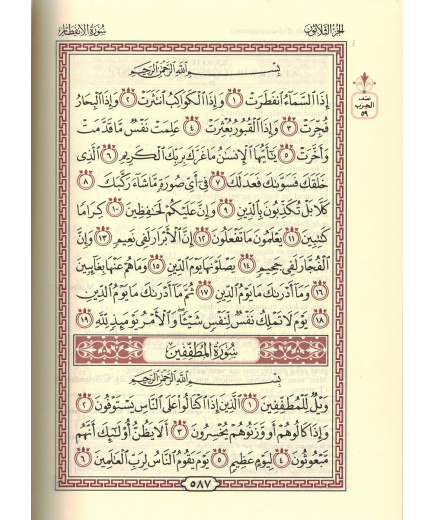 الجُزْءُ الثَّلَاثُونَ
سُورَةُ الِانفِطَارِ
بِسْمِ اللَّهِ الرَّحْمَٰنِ الرَّحِيمِ
إِذَا السَّمَاءُ انفَطَرَتْ ١ وَإِذَا الْكَوَاكِبُ انتَثَرَتْ ٢ وَإِذَا الْبِحَارُ
فُجِّرَتْ ٣ وَإِذَا الْقُبُورُ بُعْثِرَتْ ٤ عَلِمَتْ نَفْسٌ مَّا قَدَّمَتْ
وَأَخَّرَتْ ٥ يَٰأَيُّهَا الْإِنسَٰنُ مَا غَرَّكَ بِرَبِّكَ الْكَرِيمِ ٦ الَّذِي
خَلَقَكَ فَسَوَّىٰكَ فَعَدَلَكَ ٧ فِي أَيِّ صُورَةٍ مَّا شَاءَ رَكَّبَكَ ٨
كَلَّا بَلْ تُكَذِّبُونَ بِالدِّينِ ٩ وَإِنَّ عَلَيْكُمْ لَحَٰفِظِينَ ١٠ كِرَامًا
كَٰتِبِينَ ١١ يَعْلَمُونَ مَا تَفْعَلُونَ ١٢ إِنَّ الْأَبْرَارَ لَفِي نَعِيمٍ ١٣ وَإِنَّ
الْفُجَّارَ لَفِي جَحِيمٍ ١٤ يَصْلَوْنَهَا يَوْمَ الدِّينِ ١٥ وَمَا هُمْ عَنْهَا بِغَائِبِينَ
١٦ وَمَا أَدْرَىٰكَ مَا يَوْمُ الدِّينِ ١٧ ثُمَّ مَا أَدْرَىٰكَ مَا يَوْمُ الدِّينِ
١٨ يَوْمَ لَا تَمْلِكُ نَفْسٌ لِّنَفْسٍ شَيْئًا وَالْأَمْرُ يَوْمَئِذٍ لِّلَّهِ ١٩
سُورَةُ الْمُطَفِّفِينَ
بِسْمِ اللَّهِ الرَّحْمَٰنِ الرَّحِيمِ
وَيْلٌ لِّلْمُطَفِّفِينَ ١ الَّذِينَ إِذَا اكْتَالُوا عَلَى النَّاسِ يَسْتَوْفُونَ ٢
وَإِذَا كَالُوهُمْ أَو وَّزَنُوهُمْ يُخْسِرُونَ ٣ أَلَا يَظُنُّ أُولَٰئِكَ أَنَّهُم
مَّبْعُوثُونَ ٤ لِيَوْمٍ عَظِيمٍ ٥ يَوْمَ يَقُومُ النَّاسُ لِرَبِّ الْعَٰلَمِينَ ٦
٥٨٧
الحزب
٥٩